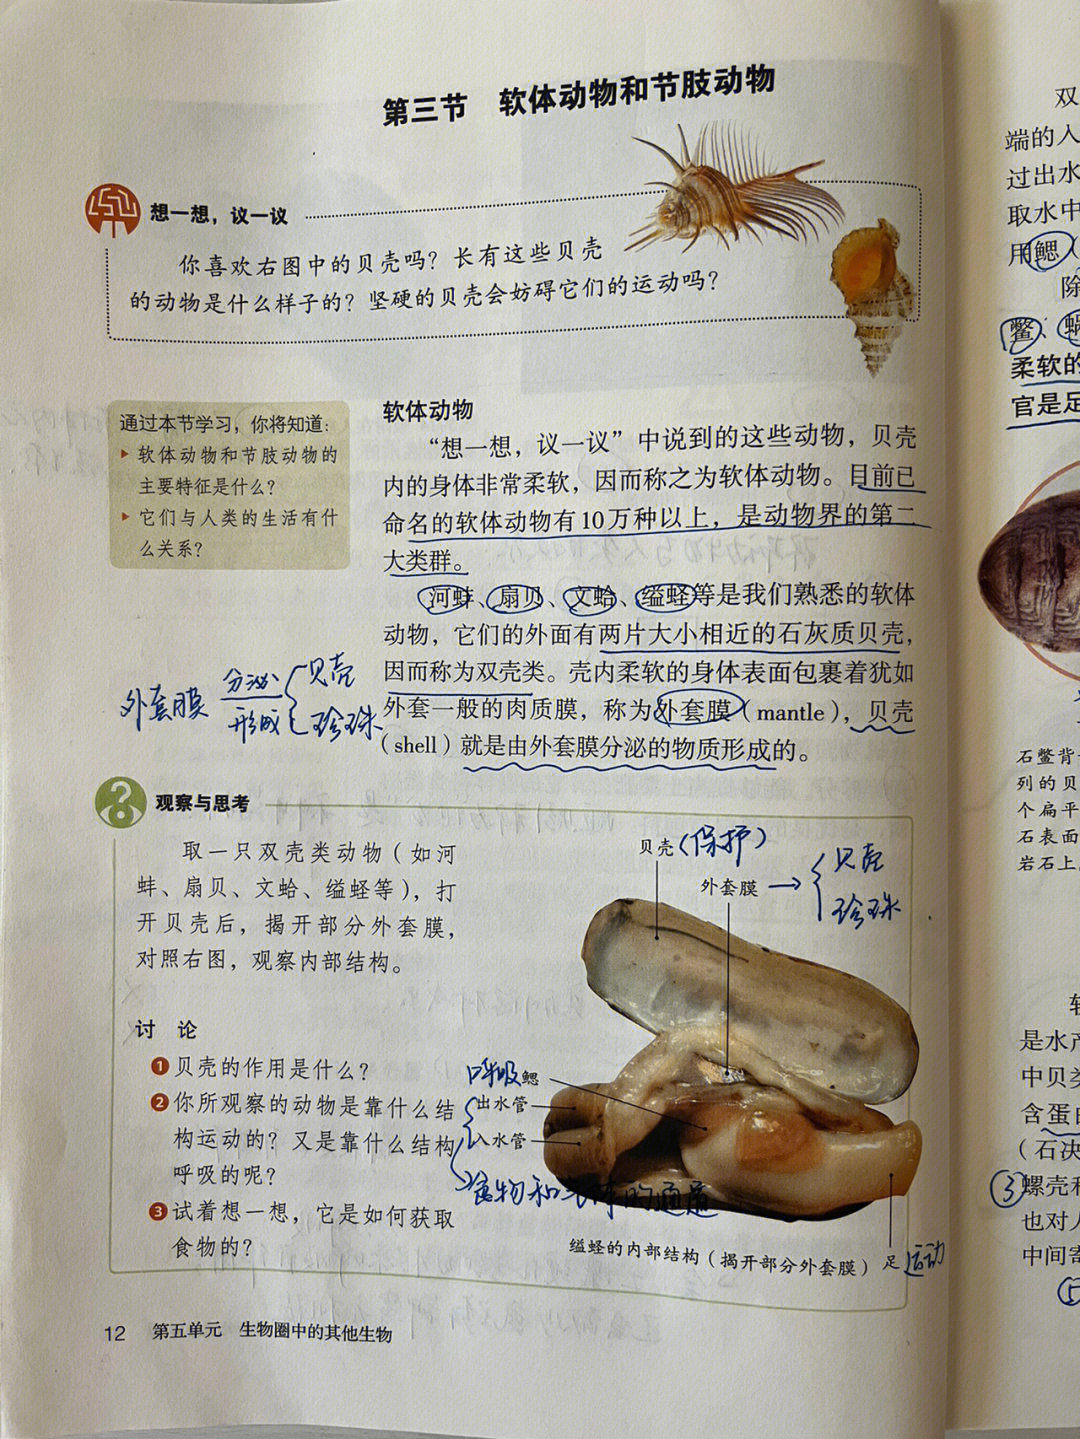 第三节 软体动物和节肢动物
想一想，议一议
你喜欢右图中的贝壳吗？长有这些贝壳
的动物是什么样子的？坚硬的贝壳会妨碍它们的运动吗？
通过本节学习，你将知道：
软体动物和节肢动物的
主要特征是什么？
它们与人类的生活有什
么关系？
软体动物
“想一想，议一议”中说到的这些动物，贝壳
内的身体非常柔软，因而称之为软体动物。目前已
命名的软体动物有10万种以上，是动物界的第二
大类群。
河蚌、扇贝、文蛤、缢蛏等是我们熟悉的软体
动物，它们的外面有两片大小相近的石灰质贝壳，
因而称为双壳类。壳内柔软的身体表面包裹着犹如
外套一般的肉质膜，称为外套膜（mantle），贝壳
（shell）就是由外套膜分泌的物质形成的。
外套膜 分泌 形成 贝壳 珍珠
观察与思考
取一只双壳类动物（如河
蚌、扇贝、文蛤、缢蛏等），打
开贝壳后，揭开部分外套膜，
对照右图，观察内部结构。
讨 论
1 贝壳的作用是什么？
2 你所观察的动物是靠什么结
构运动的？又是靠什么结构
呼吸的呢？
3 试着想一想，它是如何获取
食物的？
贝壳（保护）
外套膜→ 贝壳
珍珠
呼吸 鳃
出水管
入水管
食物和气体的通道
足 运动
缢蛏的内部结构（揭开部分外套膜）
12 第五单元 生物圈中的其他生物
双
端的人
过出水
取水中
用鳃（
除
鳖、蜗
柔软的
官是足
石鳖背
列的贝
个扁平
石表面
岩石上
是水产
中贝类
含蛋白
（石决
③螺壳和
也对人
中间寄